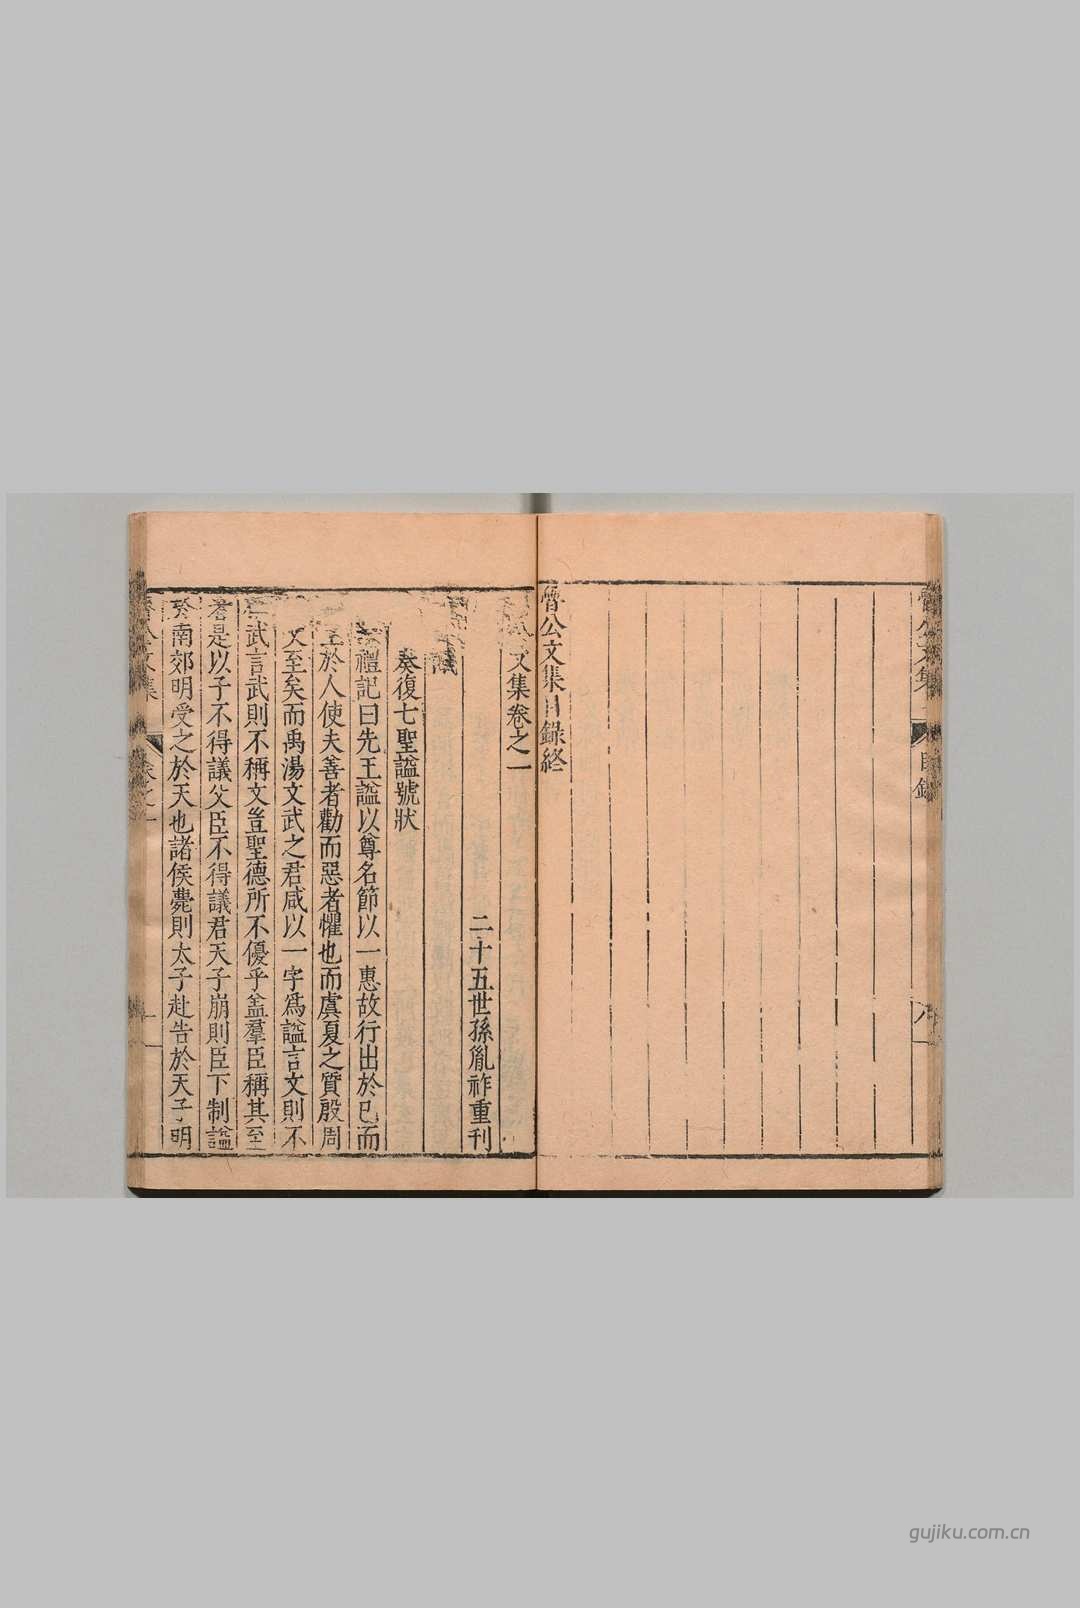 魯公文集目錄終
目錄
八
文集卷之一
二十五世孫胤祚重刊
議
奏復七聖諡號狀
禮記曰先王諡以尊名節以一惠故行出於已而
至於人使夫善者勸而惡者懼也而虞夏之質殷周
文至矣而禹湯文武之君咸以一字為諡言文則不
武言武則不稱文豈聖德所不優乎盖羣臣稱其至
者是以子不得議父臣不得議君天子崩則臣下制諡
於南郊明受之於天也諸侯薨則太子赴告於天子明
卷之一
一
gujiku.com.cn